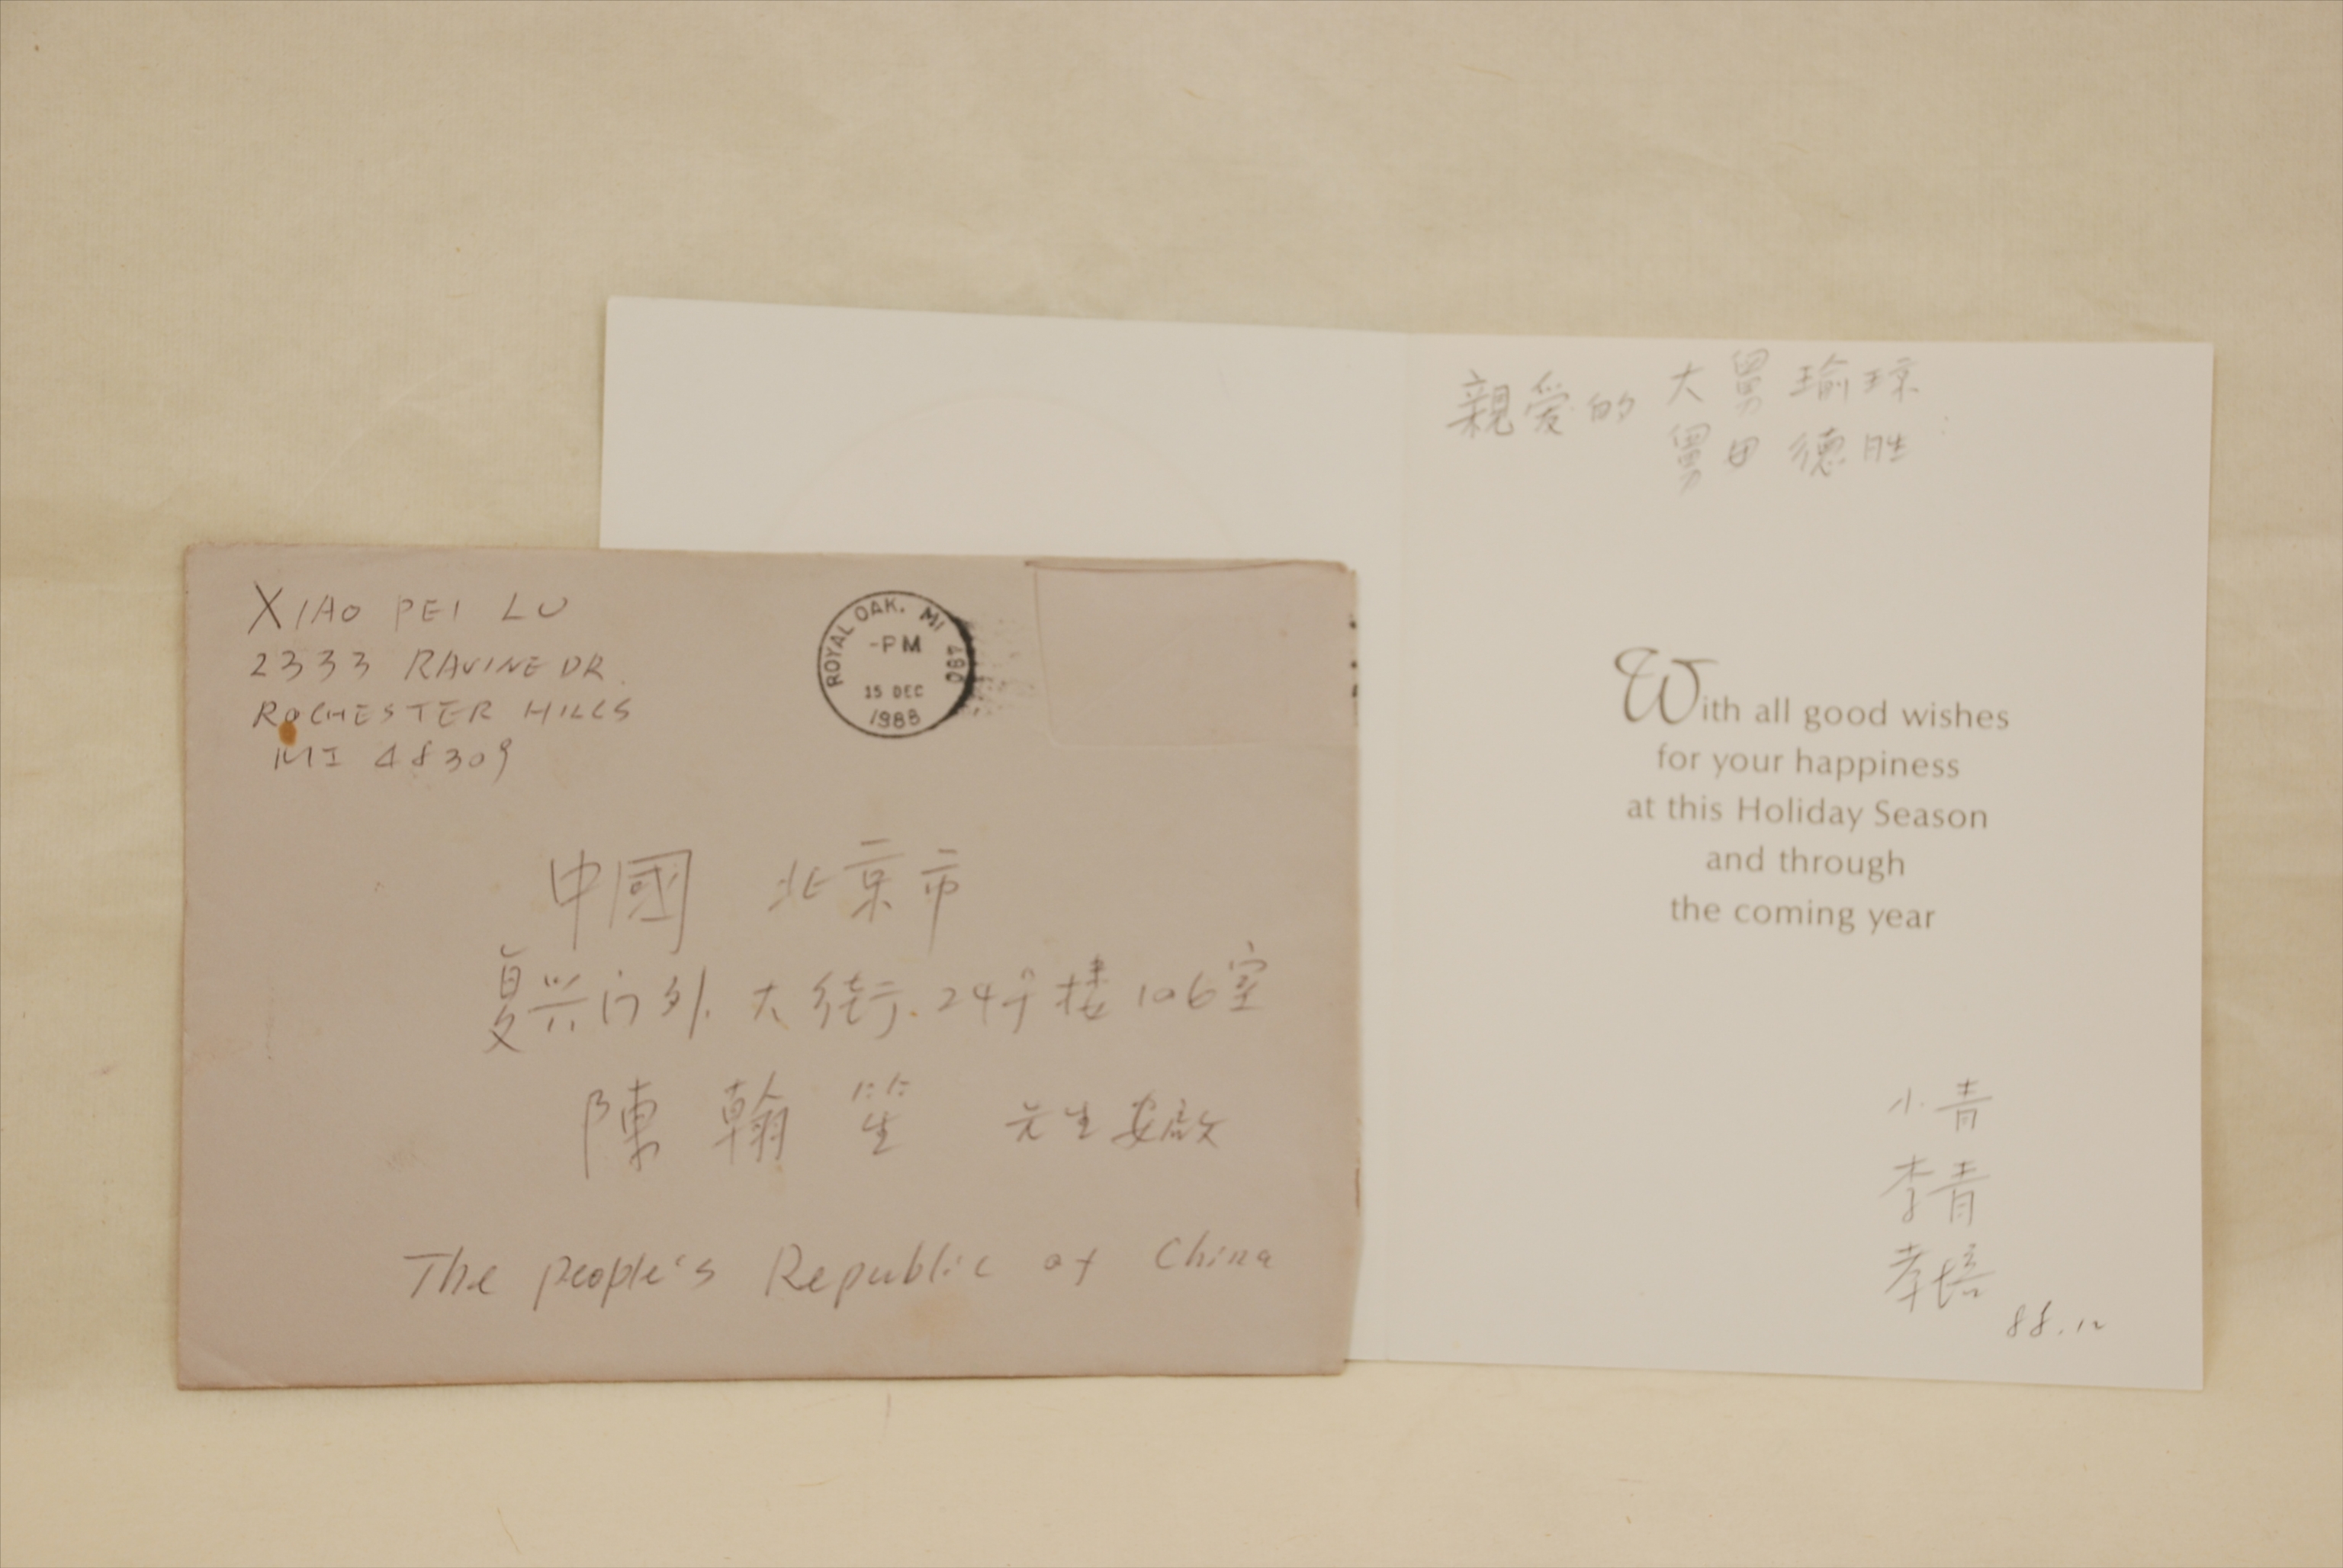 XIAO PEI LU
2333 RAVINE DR.
ROCHESTER HILLS
MI 48309
ROYAL OAK. MI 087
-PM
15 DEC
1988
中國 北京市
复兴门外.大街.24号楼106室
陳翰笙 先生安啟
The people's Republic of China
親愛的 大舅 瑜琼
舅母 德胜:
With all good wishes
for your happiness
at this Holiday Season
and through
the coming year
小青
李青
孝培
88.12